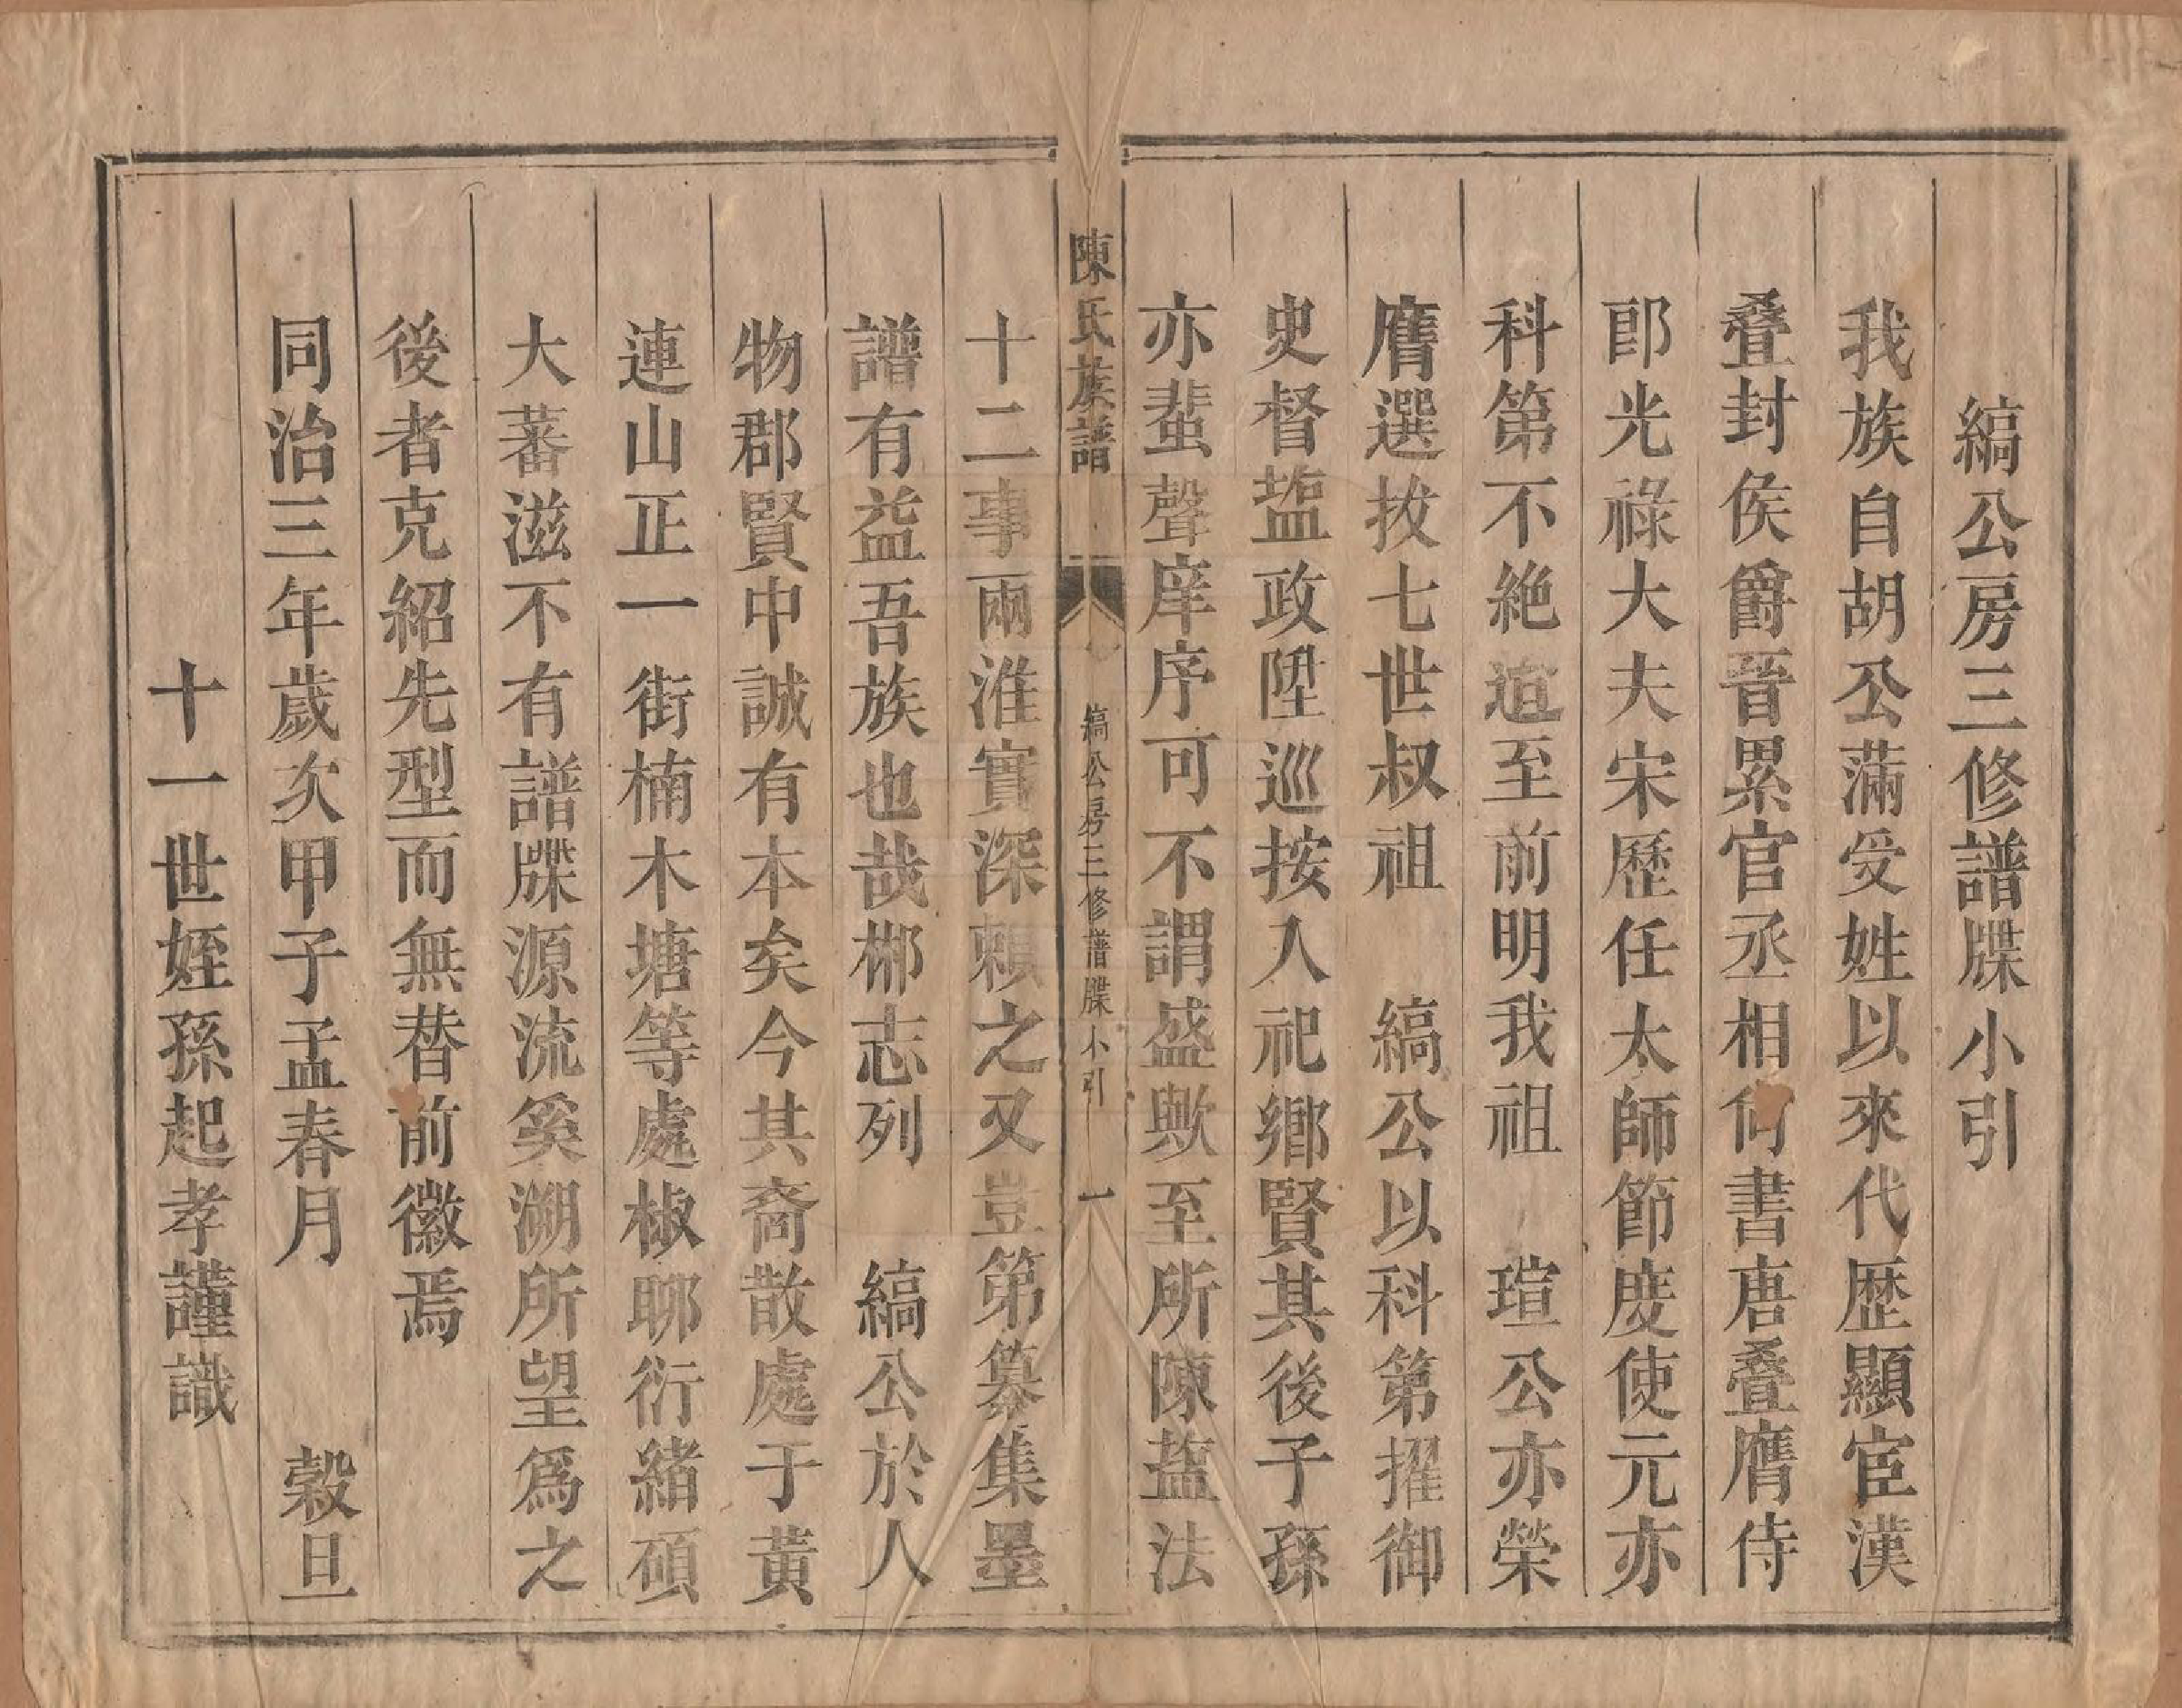 縞公房三修譜牒小引
我族自胡公滿受姓以來代歴顯宦漢
叠封侯爵晉累官丞相尙書唐叠膺侍
郎光祿大夫宋歷任太師節度使元亦
科第不絶迨至前明我祖　瑄公亦榮
膺選拔七世叔祖　縞公以科第擢御
史督塩政陞巡按入祀鄉賢其後子孫
亦蜚聲庠序可不謂盛歟至所陳盐法
陳氏族譜　縞公房三修譜牒小引　一
十二事兩淮實深賴之又豈第纂集墨
譜有益吾族也哉郴志列　縞公於人
物郡賢中誠有本矣今其裔散處于黃
連山正一街楠木塘等處椒聊衍緒碩
大蕃滋不有譜牒源流奚溯所望爲之
後者克紹先型而無替前徽焉
同治三年歲次甲子孟春月　穀旦
十一世姪孫起孝謹識